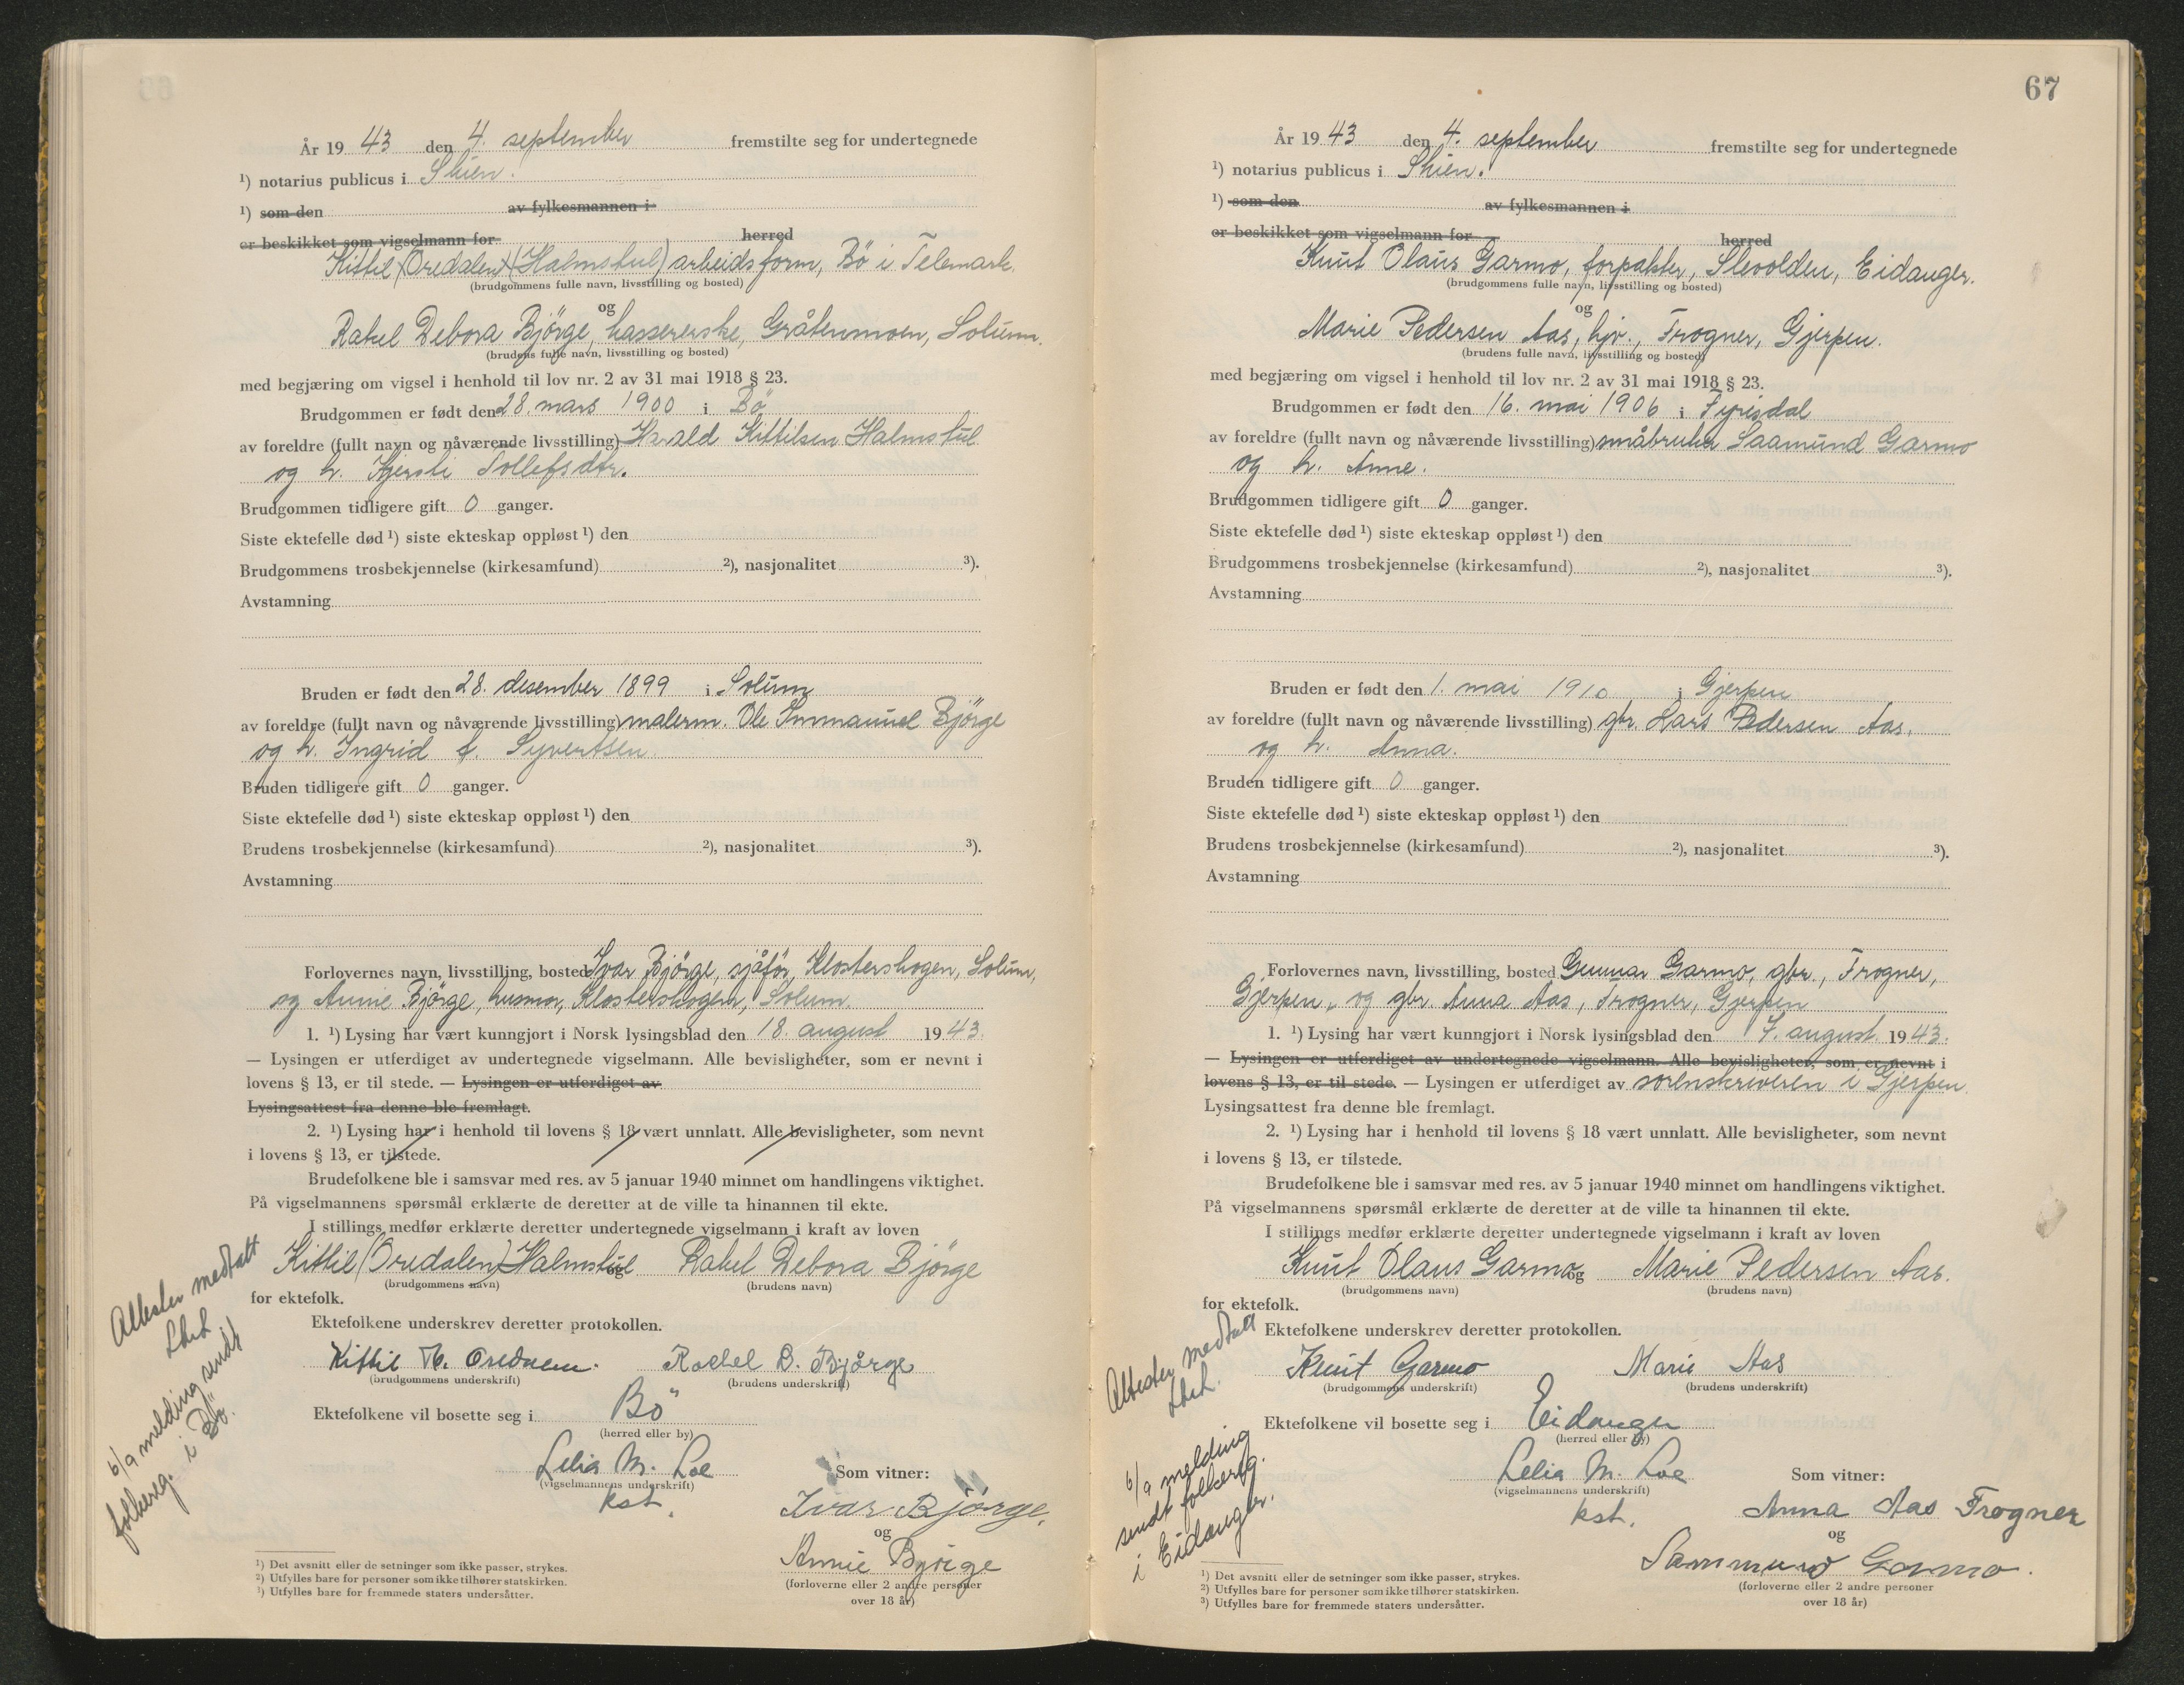 År 19 43 den 4. september fremstilte seg for undertegnede
¹) notarius publicus i Skien.
¹) som den av fylkesmannen i
er beskikket som vigselmann for herred
Kittil (Oredalen) (Halmstul) arbeidsform, Bö i Telemark.
(brudgommens fulle navn, livsstilling og bosted)
og
Rakel Debora Björge, kassererske, Gråtenmoen, Solum.
(brudens fulle navn, livsstilling og bosted)
med begjæring om vigsel i henhold til lov nr. 2 av 31 mai 1918 § 23.
Brudgommen er født den 28. mars 1900 i Bö
av foreldre (fullt navn og nåværende livsstilling) Harald Kittilsen Halmstul
og h. Kjersti Sollefsdtr.
Brudgommen tidligere gift 0 ganger.
Siste ektefelle død ¹) siste ekteskap oppløst ¹) den
Brudgommens trosbekjennelse (kirkesamfund) ²), nasjonalitet ³).
Avstamning
Bruden er født den 28. desember 1899 i Solum
av foreldre (fullt navn og nåværende livsstilling) malerm. Ole Immanuel Björge
og h. Ingrid f. Syvertsen.
Bruden tidligere gift 0 ganger.
Siste ektefelle død ¹) siste ekteskap oppløst ¹) den
Brudens trosbekjennelse (kirkesamfund) ²), nasjonalitet ³).
Avstamning
Forlovernes navn, livsstilling, bosted Ivar Björge, sjåför, Klostershogen, Solum,
og Annie Björge, husmor, Klostershogen, Solum.
1. ¹) Lysing har vært kunngjort i Norsk lysingsblad den 18. august 19 43.
— Lysingen er utferdiget av undertegnede vigselmann. Alle bevisligheter, som er nevnt i
lovens § 13, er til stede. — Lysingen er utferdiget av
Lysingsattest fra denne ble fremlagt.
2. ¹) Lysing har i henhold til lovens § 18 vært unnlatt. Alle bevisligheter, som nevnt
i lovens § 13, er tilstede.
Brudefolkene ble i samsvar med res. av 5 januar 1940 minnet om handlingens viktighet.
På vigselmannens spørsmål erklærte de deretter at de ville ta hinannen til ekte.
I stillings medfør erklærte deretter undertegnede vigselmann i kraft av loven
Kittil (Oredalen) Halmstul og Rakel Debora Björge
(brudgommens navn) (brudens navn)
for ektefolk.
Ektefolkene underskrev deretter protokollen.
Kittil H. Oredalen. Rachel D. Bjørge
(brudgommens underskrift) (brudens underskrift)
Ektefolkene vil bosette seg i Bö
(herred eller by)
Lelia M. Loe Som vitner:
(vigselmannens underskrift)
kst. Ivar Bjørge.
og
Annie Bjørge
(forloverne eller 2 andre personer
over 18 år)
Attester mottatt
6/9 melding sendt
folkereg. i Bö.
¹) Det avsnitt eller de setninger som ikke passer, strykes.
²) Utfylles bare for personer som ikke tilhører statskirken.
³) Utfylles bare for fremmede staters undersåtter.
67
År 19 43 den 4. september fremstilte seg for undertegnede
¹) notarius publicus i Skien.
¹) som den av fylkesmannen i
er beskikket som vigselmann for herred
Knut Olaus Garmo, forpakter, Slevolden, Eidanger.
(brudgommens fulle navn, livsstilling og bosted)
og
Marie Pedersen Aas, hjv., Frogner, Gjerpen.
(brudens fulle navn, livsstilling og bosted)
med begjæring om vigsel i henhold til lov nr. 2 av 31 mai 1918 § 23.
Brudgommen er født den 16. mai 1906 i Fyrisdal
av foreldre (fullt navn og nåværende livsstilling) småbruker Saamund Garmo
og h. Anne.
Brudgommen tidligere gift 0 ganger.
Siste ektefelle død ¹) siste ekteskap oppløst ¹) den
Brudgommens trosbekjennelse (kirkesamfund) ²), nasjonalitet ³).
Avstamning
Bruden er født den 1. mai 1910 i Gjerpen
av foreldre (fullt navn og nåværende livsstilling) gbr. Lars Pedersen Aas.
og h. Anna.
Bruden tidligere gift 0 ganger.
Siste ektefelle død ¹) siste ekteskap oppløst ¹) den
Brudens trosbekjennelse (kirkesamfund) ²), nasjonalitet ³).
Avstamning
Forlovernes navn, livsstilling, bosted Gunnar Garmo, gbr., Frogner,
Gjerpen, og gbr. Anna Aas, Frogner, Gjerpen
1. ¹) Lysing har vært kunngjort i Norsk lysingsblad den 7. august. 19 43.
— Lysingen er utferdiget av undertegnede vigselmann. Alle bevisligheter, som er nevnt i
lovens § 13, er til stede. — Lysingen er utferdiget av sorenskriveren i Gjerpen.
Lysingsattest fra denne ble fremlagt.
2. ¹) Lysing har i henhold til lovens § 18 vært unnlatt. Alle bevisligheter, som nevnt
i lovens § 13, er tilstede.
Brudefolkene ble i samsvar med res. av 5 januar 1940 minnet om handlingens viktighet.
På vigselmannens spørsmål erklærte de deretter at de ville ta hinannen til ekte.
I stillings medfør erklærte deretter undertegnede vigselmann i kraft av loven
Knut Olaus Garmo og Marie Pedersen Aas.
(brudgommens navn) (brudens navn)
for ektefolk.
Ektefolkene underskrev deretter protokollen.
Knut Garmo Marie Aas
(brudgommens underskrift) (brudens underskrift)
Ektefolkene vil bosette seg i Eidanger
(herred eller by)
Lelia M. Loe Som vitner:
(vigselmannens underskrift)
kst. Anna Aas Frogner
og
Sammund Garmo.
(forloverne eller 2 andre personer
over 18 år)
Attester mottatt
6/9 melding
sendt folkereg.
i Eidanger.
¹) Det avsnitt eller de setninger som ikke passer, strykes.
²) Utfylles bare for personer som ikke tilhører statskirken.
³) Utfylles bare for fremmede staters undersåtter.